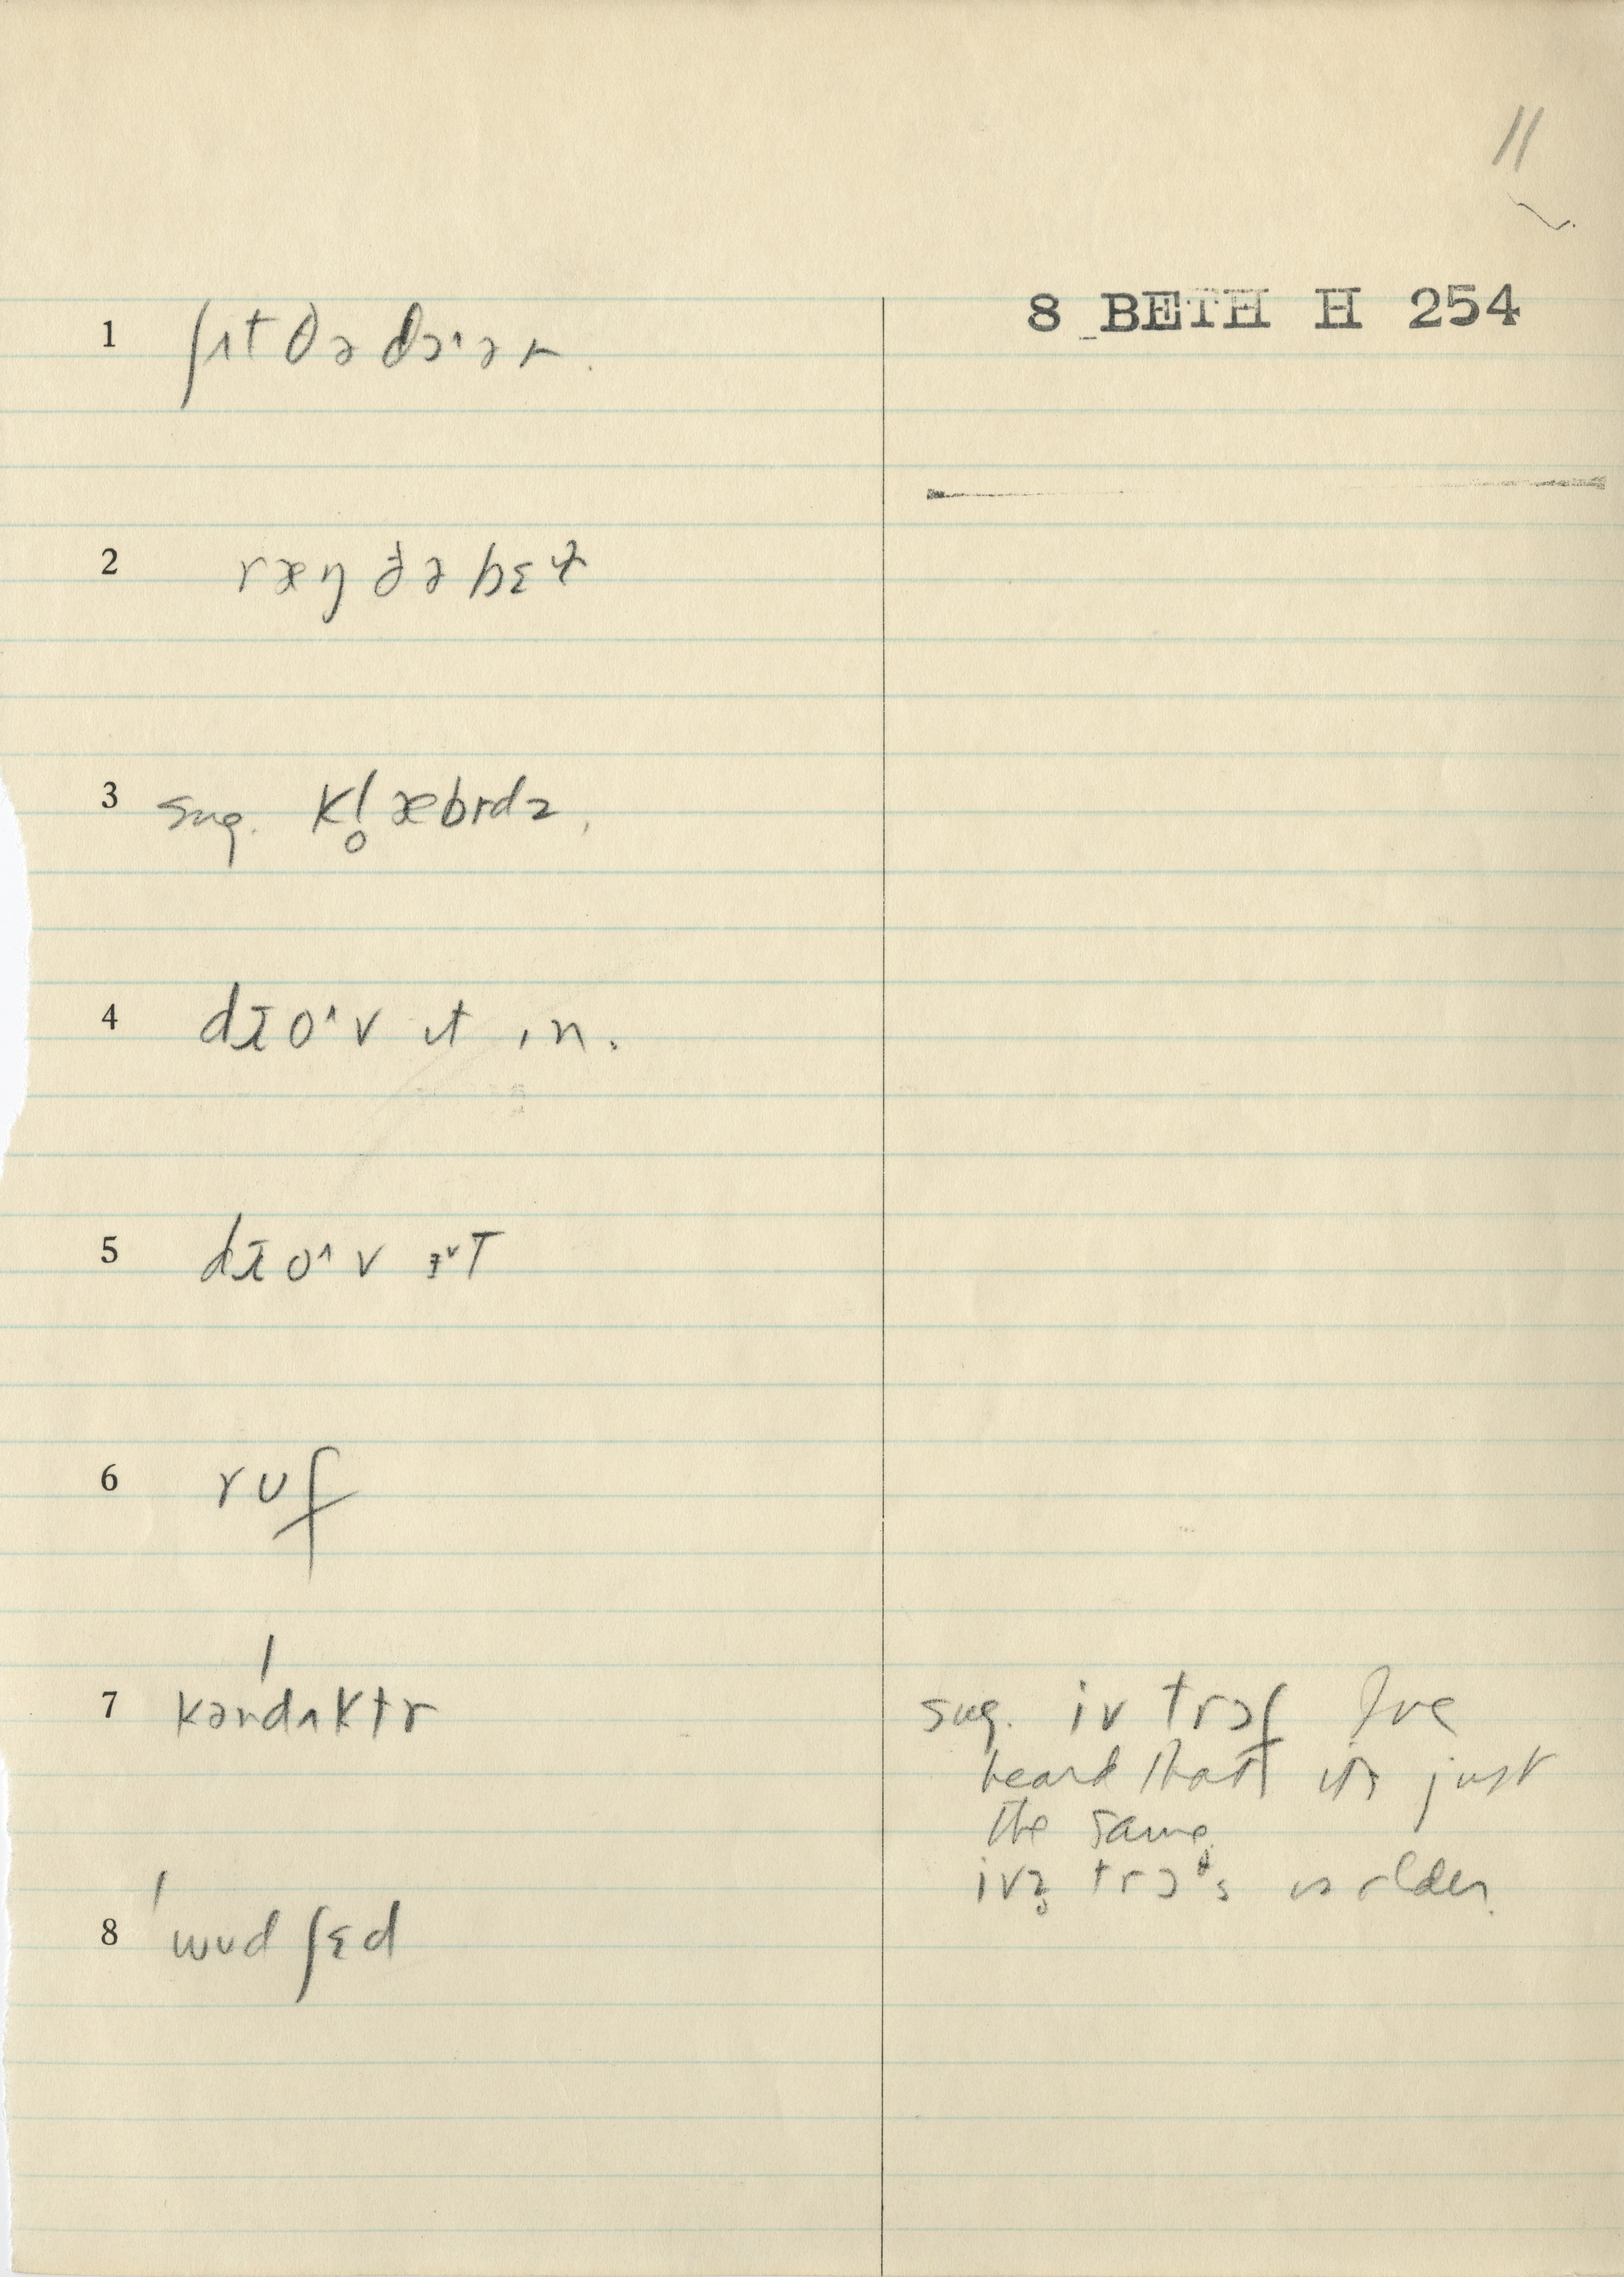 11
8 BETH H 254
1 ʃʌt ðə dɔ˞ər.
2 ræŋ ðə bɛɫ
3 sug. kl̥æbrdz,
4 dro^v ɪt ɪn.
5 dro^v
6 ruf
7 kəndʌktr
sug. iv trɔf I've
heard that it's just
the same
ivz̥ is older.
8 wʊd ʃɛd